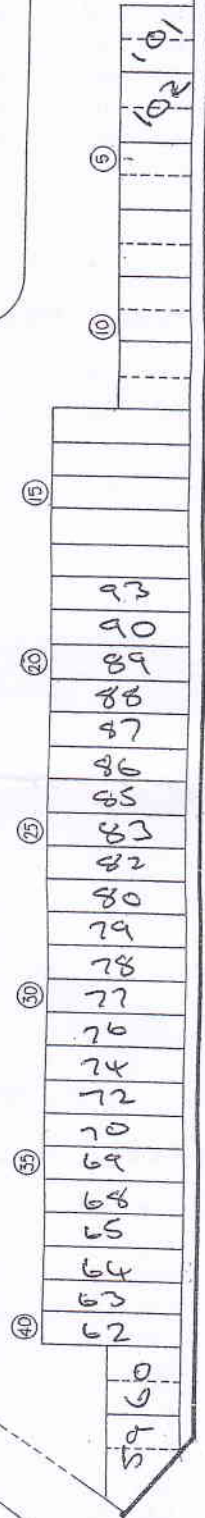 101
102
5
10
15
93
90
20
89
88
87
86
85
25
83
82
80
79
78
30
77
76
74
72
70
35
69
68
65
64
63
40
62
60
59